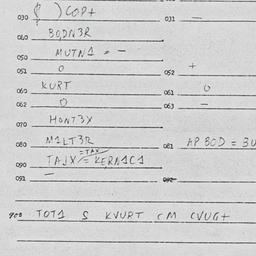 030 ( ) COP+ 031 —
040 BODN3R
050 MUTN1 = -
051 0 052 +
060 KURT 061 0
062 0 063 —
070 MONT3X
080 M1LT3R 081 AP BOD = 3U
=TAX
090 TAJX = KERN1C1
091 — 092
900 TOT1 S KVURT CM CVUG+